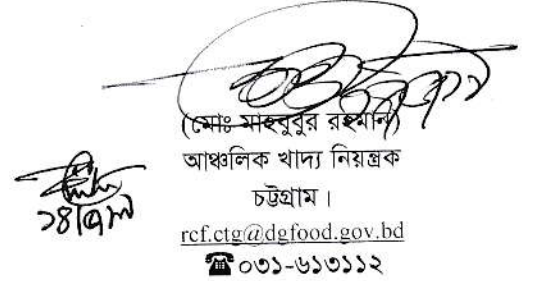 (মোঃ মাহবুবুর রহমান)
আঞ্চলিক খাদ্য নিয়ন্ত্রক
চট্টগ্রাম।
rcf.ctg@dgfood.gov.bd
☎০৩১-৬১৩১১২